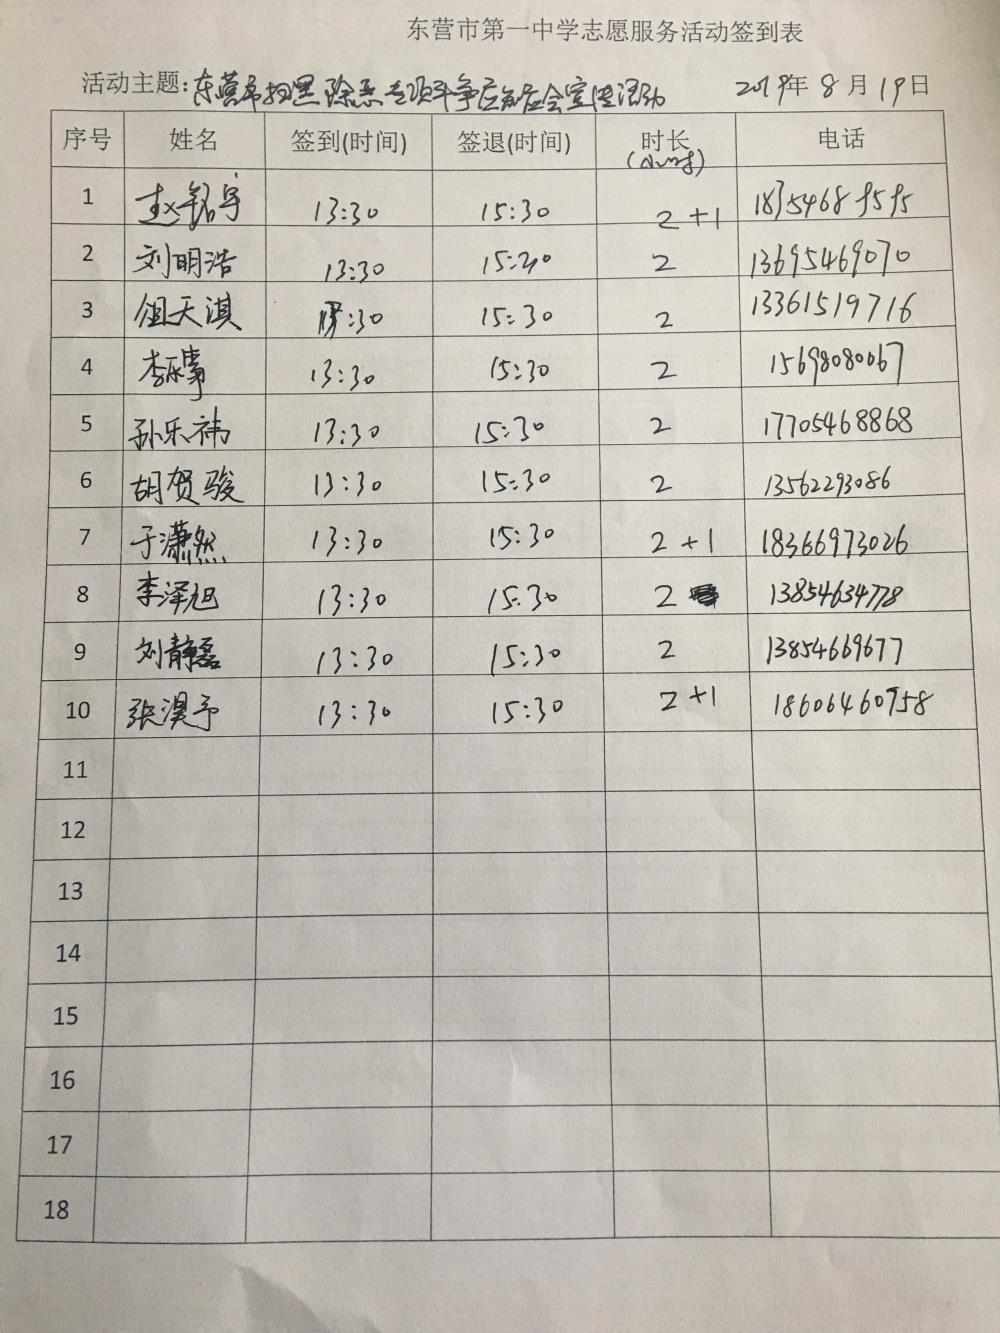 东营市第一中学志愿服务活动签到表
活动主题:东营市扫黑除恶专项斗争应知应会宣传活动 2019年8月19日
序号 姓名 签到(时间) 签退(时间) 时长(小时) 电话
1 赵铭宇 13:30 15:30 2+1
2 刘明浩 13:30 15:30 2 13695469070
3 天淇 :30 15:30 2 13361519716
4 李 13:30 15:30 2 15698080067
5 孙乐祎 13:30 15:30 2 17705468868
6 胡贺骏 13:30 15:30 2 13562293086
7 于潇然 13:30 15:30 2+1 18366973026
8 李泽旭 13:30 15:30 2 13854634778
9 刘静磊 13:30 15:30 2 13854669677
10 张淏予 13:30 15:30 2+1 18606460758
11
12
13
14
15
16
17
18